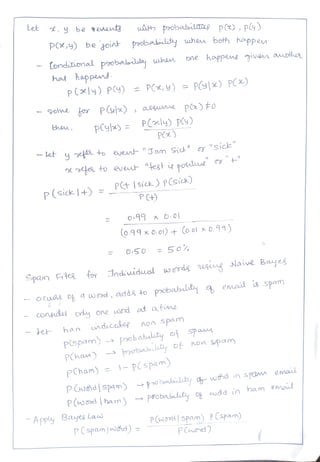 Let x, y be events with probabilities p(x), p(y)
p(x,y) be joint probability when both happen
- Conditional probability when one happens given another
has happend
p(x|y) p(y) = P(x,y) = P(y|x) P(x)
- some for P(y|x), assume p(x) ≠ 0
then, p(y|x) = P(x|y) P(y)
P(x)
- let y refer to event "I am Sick" or "sick"
x refer to event "test is positive" or "+"
p(sick|+) = P(+|sick) P(sick)
P(+)
= 0.99 x 0.01
(0.99 x 0.01) + (0.01 x 0.99)
= 0.50 = 50%
Spam Filter for Individual words using Naive Bayes
- occurs of a word, adds to probability of email is spam
- consider only one word at a time
- let ham indicates non spam
p(spam) → probability of spam
P(ham) → probability of non spam
P(ham) = 1 - P(spam)
P(word|spam) → probability of word in spam email
P(word|ham) → probability of word in ham email
- Apply Bayes Law
P(spam|word) = P(word|spam) P(spam)
P(word)